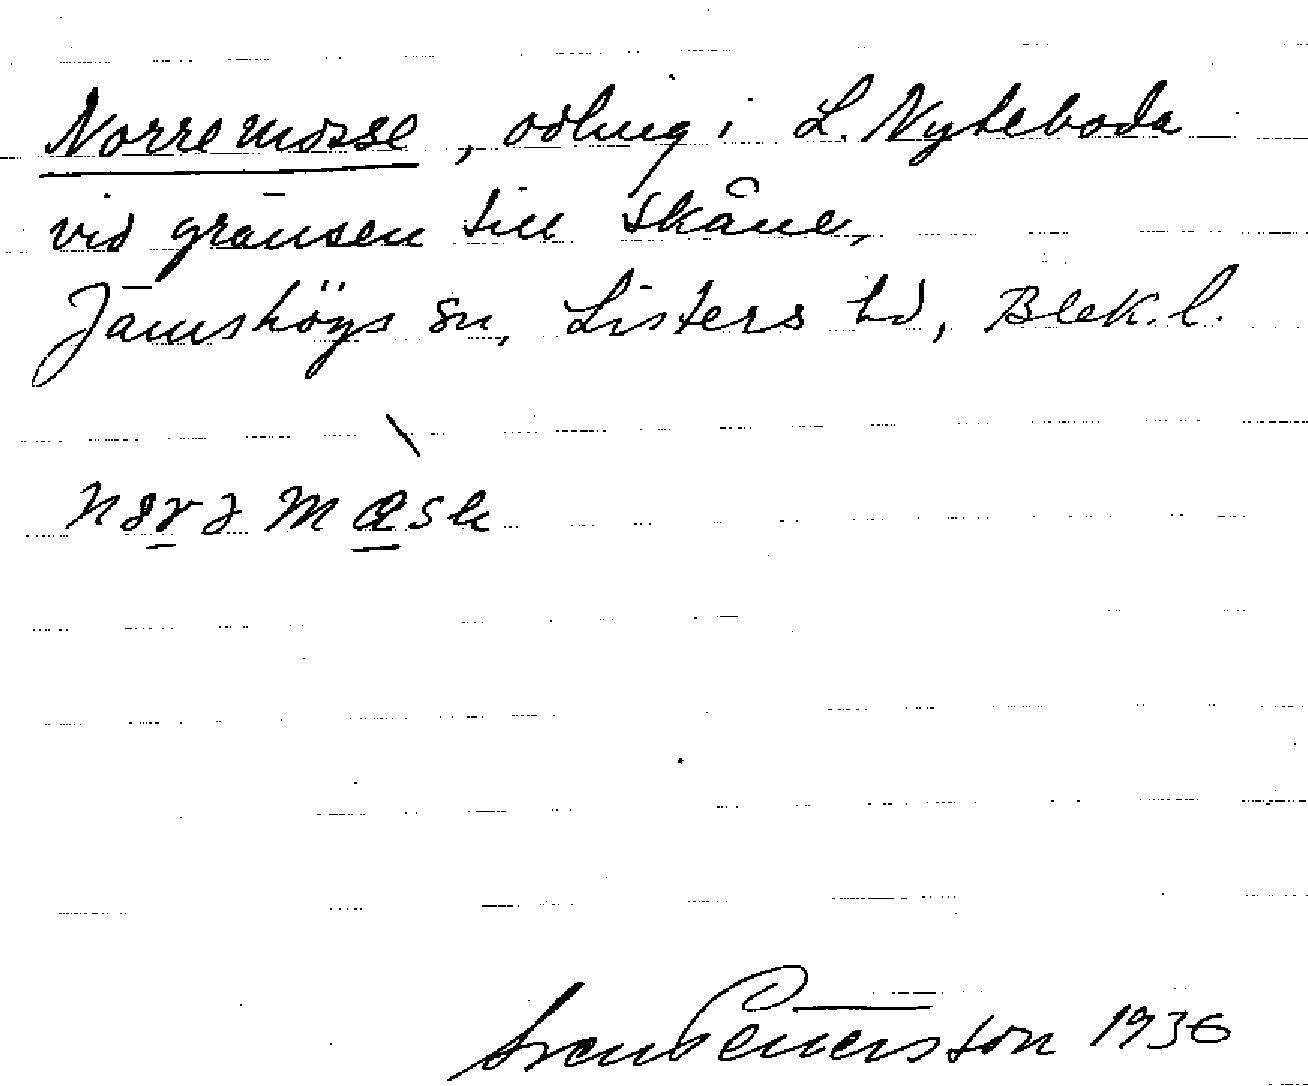 Norremosse, odling i L. Nyteboda
vid gränsen till Skåne,
Jämshögs sn, Listers hd, Blek. l.
Sven Pettersson 1936